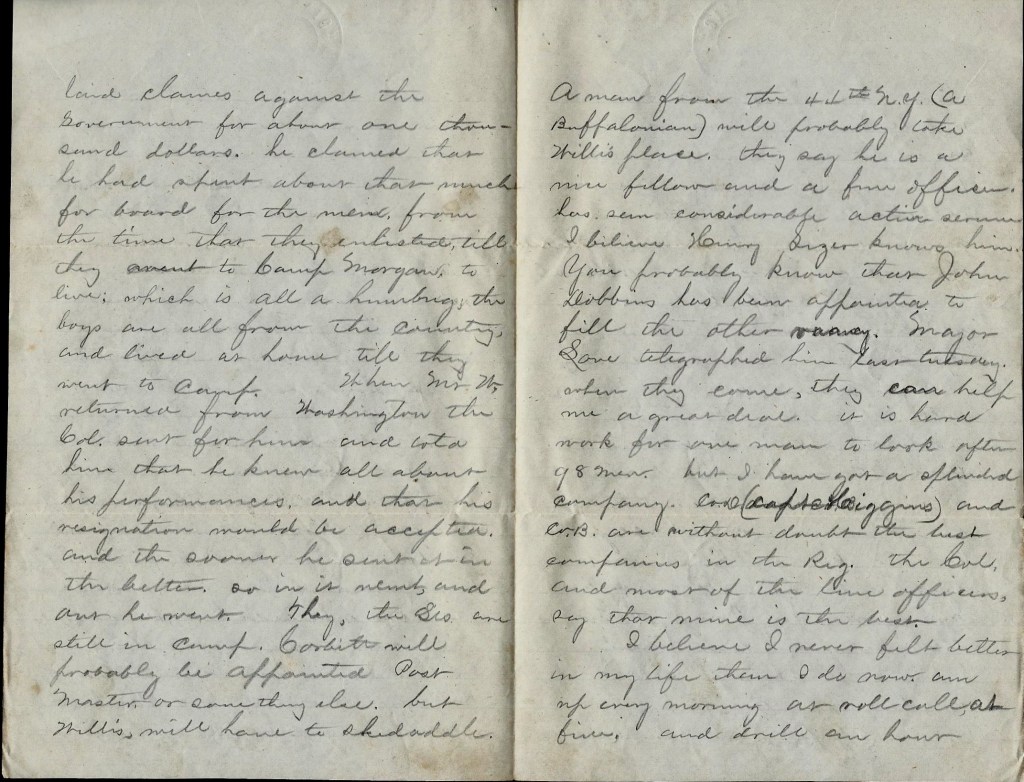 laid claimes against the
Government for about one thou-
sand dollars. he claimed that
he had spent about that much
for board for the men, from
the time that they enlisted, till
they went to Camp Morgan, to
live; which is all a humbug, the
boys are all from the country,
and lived at home till they
went to camp. When Mr. W.
returned from Washington the
Col. sent for him and told
him that he knew all about
his performances, and that his
resignation would be accepted.
and the sooner he sent it in
the better. so in it went, and
out he went. They, the are
still in camp. Corbett will
probably be appointed Post
Master, or some thing else. but
Willis, will have to skedaddle.
A man from the 44th N.Y. (a
Buffalonian) will probably take
Willis place. they say he is a
nice fellow and a fine officer.
has seen considerable active service
I believe Henry Sizer knows him.
You probably know that John
Dobbins has been appointed to
fill the other vacancy. Major
Love telegraphed him last tuesday.
when they come, they can help
me a great deal. it is hard
work for one man to look after
98 men. but I have got a splendid
company. Co D (Capt Higgins) and
Co. B. are without doubt the best
companies in the Reg. the Col.
and most of the line officers,
say that mine is the best.
I believe I never felt better
in my life than I do now. am
up every morning at roll call, at
five, and drill an hour